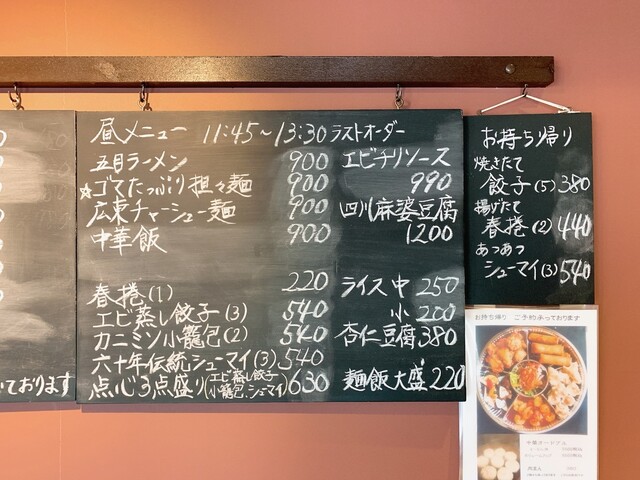 昼メニュー 11:45~13:30 ラストオーダー
五目ラーメン 900
☆ゴマたっぷり担々麺 900
広東チャーシュー麺 900
中華飯 900
春捲(1) 220
エビ蒸し餃子(3) 540
カニミソ小籠包(2) 540
六十年伝統シューマイ(3) 540
点心3点盛り(エビ蒸し餃子 小籠包、シューマイ) 630
エビチリソース
990
四川麻婆豆腐
1200
ライス中 250
小 200
杏仁豆腐 380
麺飯大盛 220
お持ち帰り
焼きたて
餃子(5) 380
揚げたて
春捲(2) 440
あつあつ
シューマイ(3) 540
いております
お持ち帰り ご予約承っております
中華オードブル